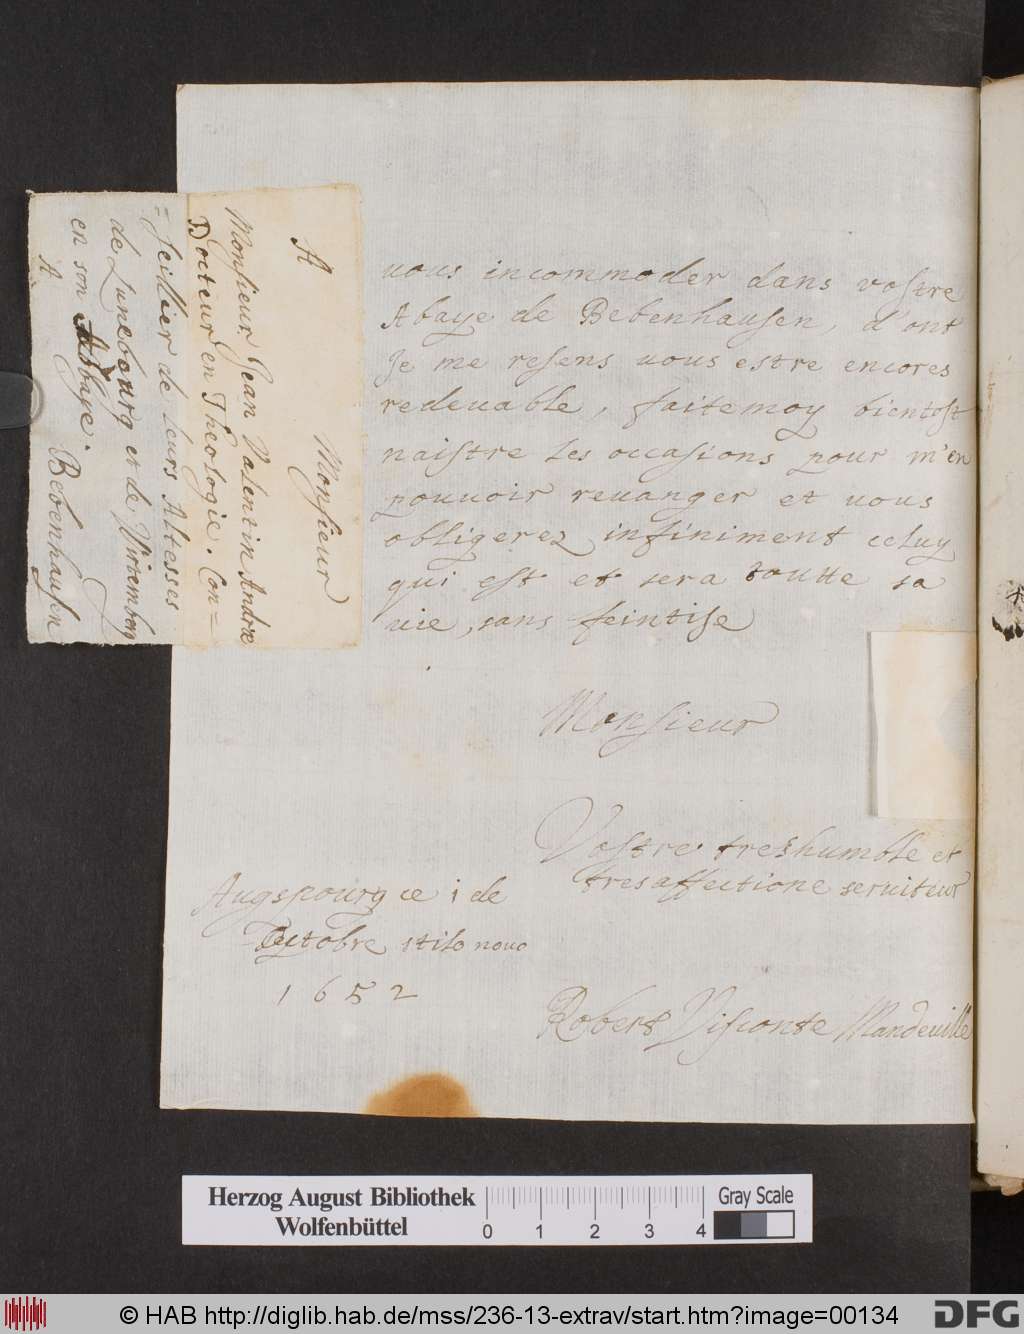 A
Monsieur
Monsieur Jean Valentin Andræ
Docteur en Theologie. Con=
=seillier de leurs Altesses
de Lunebourg et de Wirtemberg
en son Abbaye.
A Bebenhausen
vous incommoder dans vostre
Abaye de Bebenhausen, d'ont
Je me resens vous estre encores
redeuable, faitemoy bientost
naistre les occasions pour m'en
pouuoir reuanger et vous
obligerez infiniment celuy
qui est et sera toutte sa
vie, sans feintise
Monsieur
Vostre treshumble et
tresaffectione seruiteur
Augspourg ce 1 de
Octobre stilo nouo
1652
Robert Visconte Mandeuille
Herzog August Bibliothek
Wolfenbüttel
0 1 2 3 4
Gray Scale
© HAB http://diglib.hab.de/mss/236-13-extrav/start.htm?image=00134
DFG